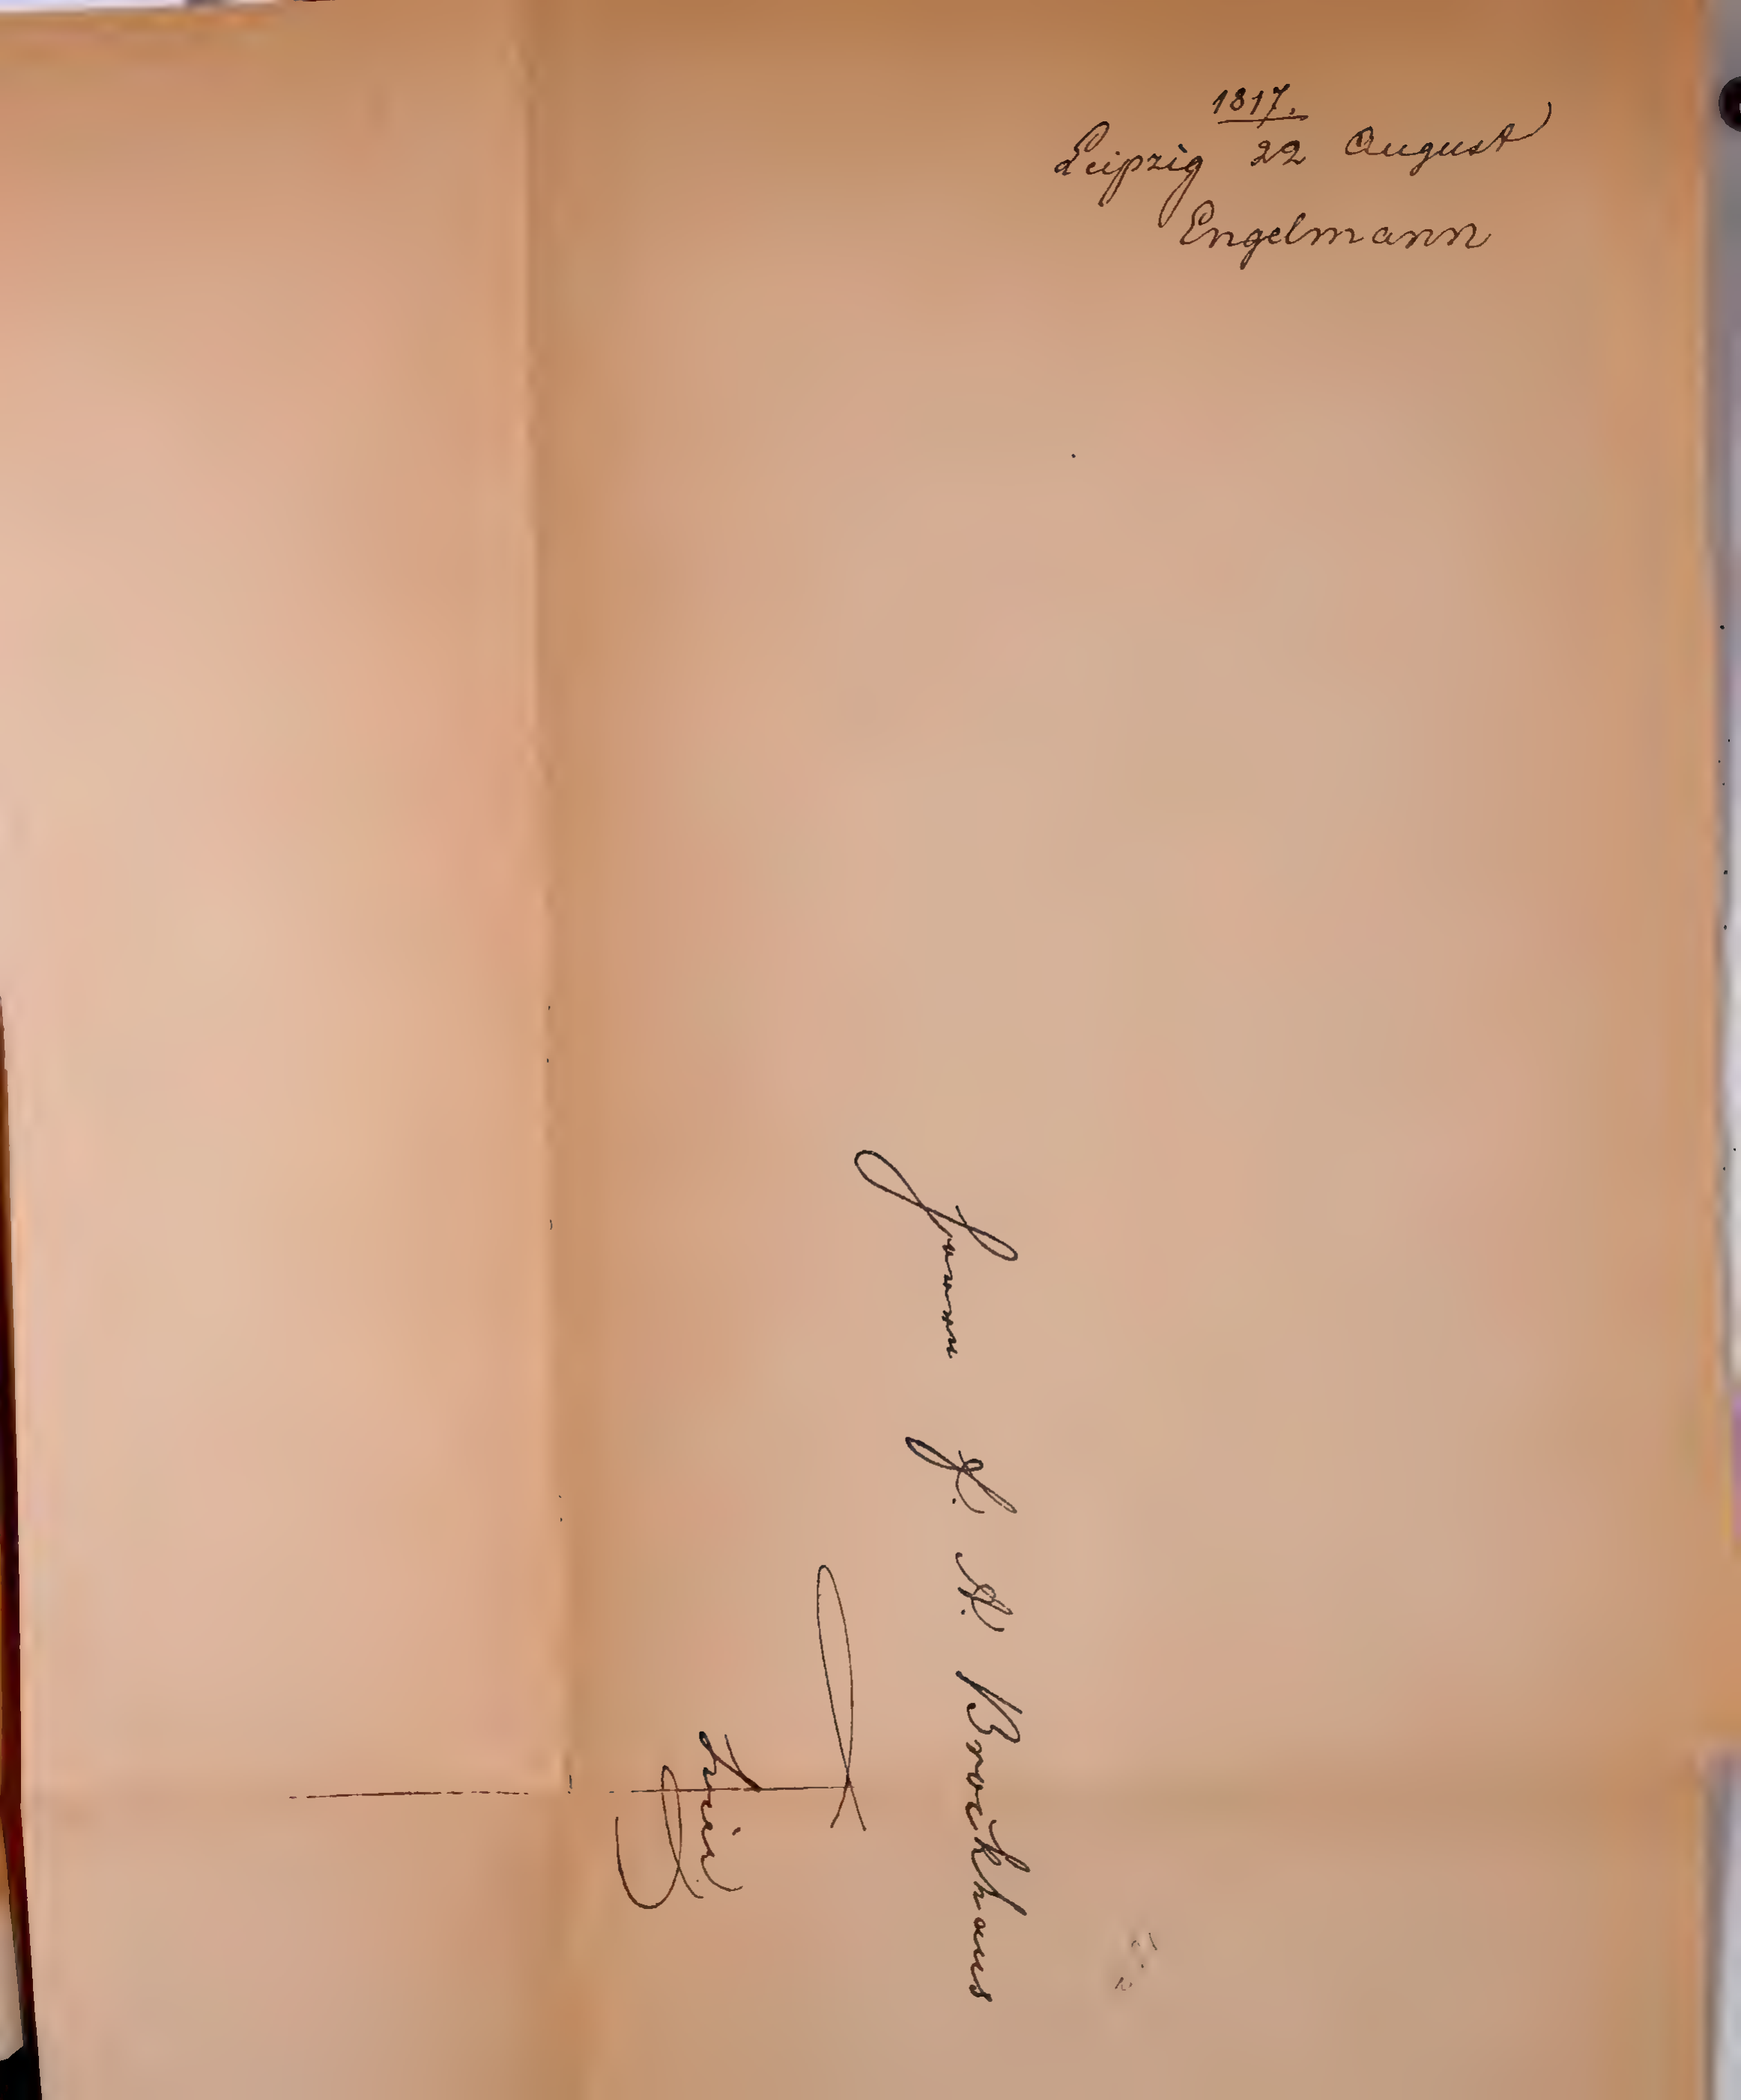 1817.
Leipzig 22 August
Engelmann
Herrn F. A. Brockhaus
hier